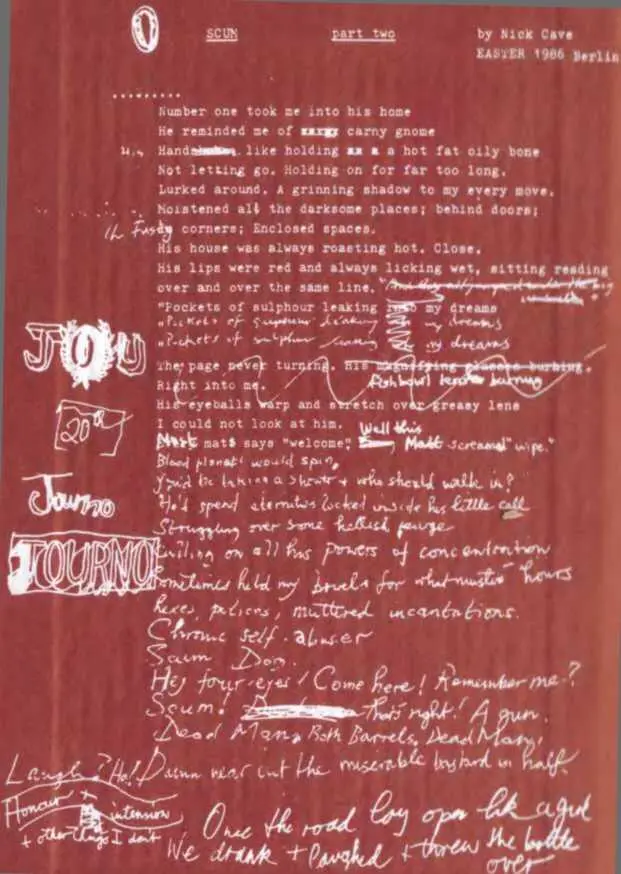 SCUM part two by Nick Cave
EASTER 1986 Berlin
.........
Number one took me into his home
He reminded me of carny gnome
Hand like holding a hot fat oily bone
Not letting go. Holding on for far too long.
Lurked around. A grinning shadow to my every move.
Moistened all the darksome places; behind doors;
corners; Enclosed spaces.
His house was always roasting hot. Close.
His lips were red and always licking wet, sitting reading
over and over the same line.
"Pockets of sulphour leaking into my dreams
"Pockets of sulpher leaking my dreams
"Pockets of sulphur leaking my dreams
The page never turning. His magnifying glasses burning.
Fishbowl lenses burning
Right into me.
His eyeballs warp and stretch over greasy lens
I could not look at him. Well this
mats says "welcome". Matt screamed "wipe."
Blood planets would spin,
You'd be taking a shower + who should walk in?
He'd spend eternities locked inside his little cell
Struggling over some hellish
Calling on all his powers of concentration
Sometimes held my bowels for what must hours
Hexes, muttered incantations.
Chronic self-abuser
Scum Dog.
Hey four-eyes! Come here! Remember me?
Scum! That's right! A gun.
Dead Man, Both Barrels, Dead Man,
Laugh? Ha! Damn near cut the miserable bastard in half.
JOU
20
Journo
JOURNO
Honour + intension
+ other things I don't
Once the road lay open like a girl
We drank + laughed + threw the bottle
over